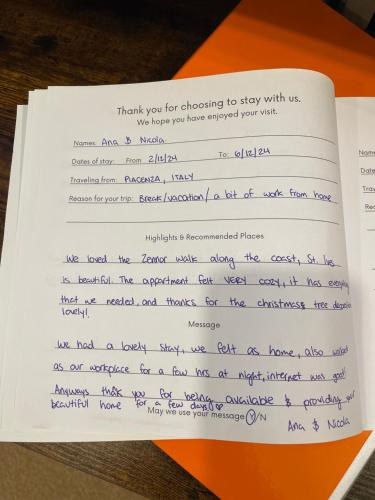 Thank you for choosing to stay with us.
We hope you have enjoyed your visit.
Names: Ana & Nicola
Dates of stay: From 2/12/24 To: 6/12/24
Traveling from: PIACENZA, ITALY
Reason for your trip: Break/vacation/ a bit of work from home
Highlights & Recommended Places
We loved the Zennor walk along the coast, St. Ives
is beautiful. The appartment felt VERY cozy, it has everything
that we needed, and thanks for the christmass tree
lovely!
Message
We had a lovely stay, we felt as home, also worked
as our workplace for a few hrs at night, internet was good!
Anyways thank you for being available & providing your
beautiful home for a few days!
May we use your message Y/N
Ana & Nicola
Nam
Date
Trav
Rea